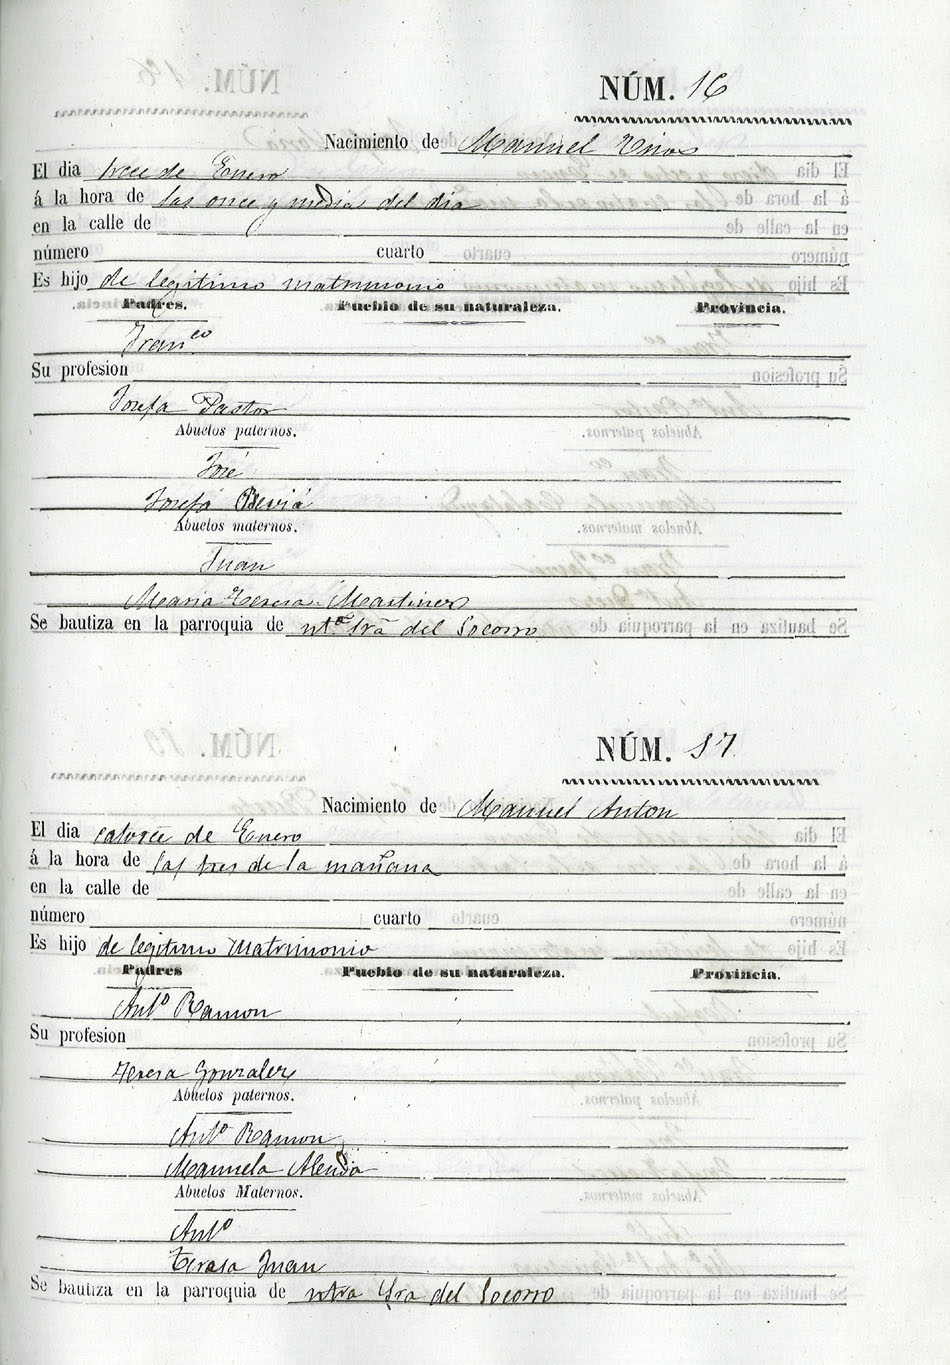 NÚM. 16
Nacimiento de Manuel
El dia trece de Enero
á la hora de las once y media del dia
en la calle de
número cuarto
Es hijo de legitimo matrimonio
Padres. Pueblo de su naturaleza. Provincia.
Franco
Su profesion
Josefa Pastor
Abuelos paternos.
José
Josefa Beviá
Abuelos maternos.
Juan
Maria Teresa Martinez
Se bautiza en la parroquia de ntª Srã del Socorro
NÚM. 17
Nacimiento de Manuel Anton
El dia catorce de Enero
á la hora de las tres de la mañana
en la calle de
número cuarto
Es hijo de legitimo Matrimonio
Padres Pueblo de su naturaleza. Provincia.
Antº Ramon
Su profesion
Teresa Gonzalez
Abuelos paternos.
Antº Ramon
Manuela Alenda
Abuelos Maternos.
Antº
Teresa Juan
Se bautiza en la parroquia de ntra Sra del Socorro